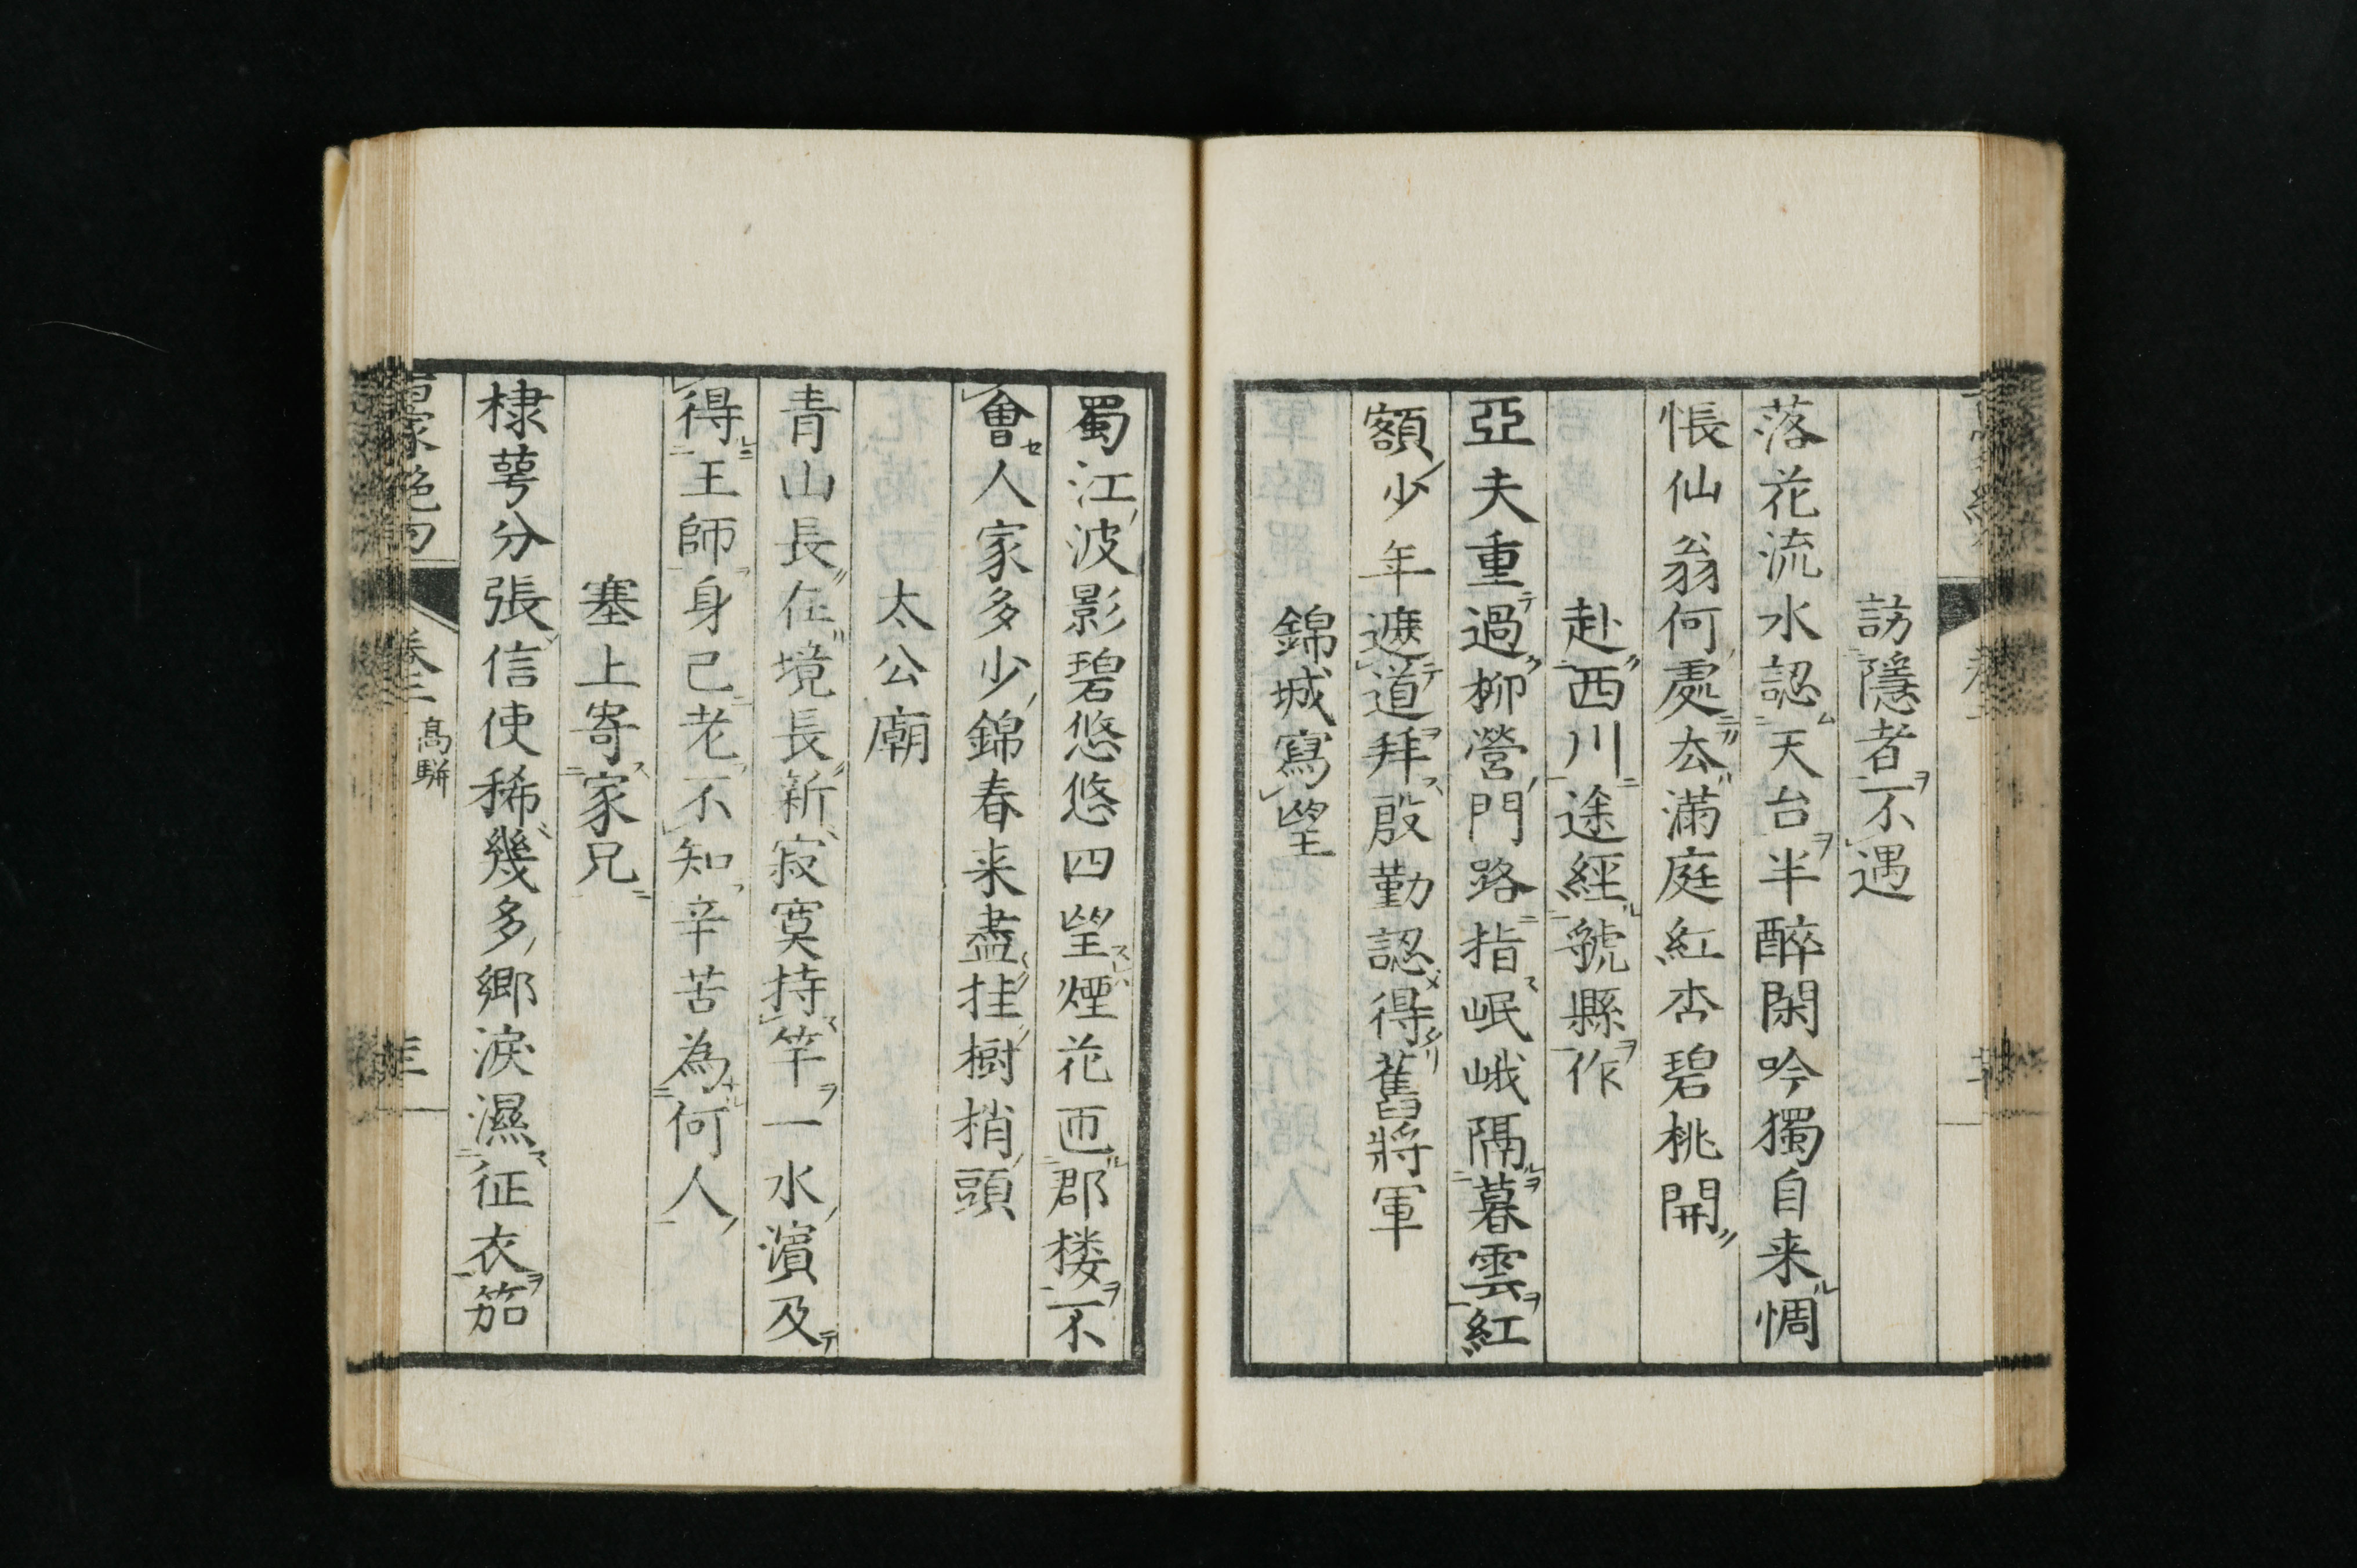 訪隱者不遇
落花流水認天台半醉閑吟獨自来惆
悵仙翁何處厺滿庭紅杏碧桃開
赴西川途經虢縣作
亞夫重過柳營門路指岷峨隔暮雲紅
額少年遮道拜殷勤認得舊將軍
錦城寫望
蜀江波影碧悠悠四望煙花匝郡楼不
會人家多少錦春来盡挂樹梢頭
太公廟
青山長在境長新寂寞持竿一水濵及
得王師身已老不知辛苦為何人
塞上寄家兄
棣萼分張信使稀幾多鄉淚濕征衣笳
家絶句
卷三
高駢